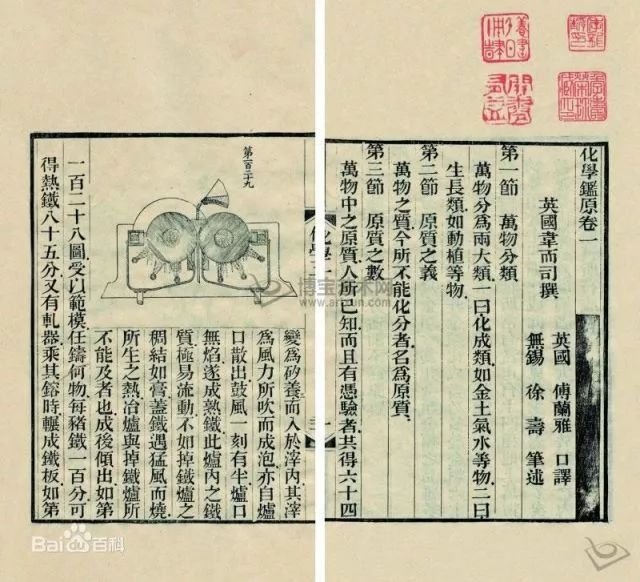 化學鑑原卷一
英國韋而司撰
英國 傅蘭雅 口譯
無錫 徐壽 筆述
第一節 萬物分類
萬物分爲兩大類一曰化成類如金土氣水等物二曰
生長類如動植等物
第二節 原質之義
萬物之質今所不能化分者名爲原質
第三節 原質之數
萬物中之原質人所已知而且有憑驗者共得六十四
化學
變爲矽養而入於滓內其滓
爲風力所吹而成泡亦自爐
口散出鼓風一刻有半爐口
無焰遂成熱鐵此爐內之鐵
質極易流動不如掉鐵爐之
稠結如膏蓋鐵遇猛風而燒
所生之熱冶爐與掉鐵爐所
不能及者也成後傾出如第
第一百二十九
一百二十八圖受以範模任鑄何物每豬鐵一百分可
得熱鐵八十五分又有軋器乘其鎔時輾成鐵板如第
博宝艺术网
Baidu百科